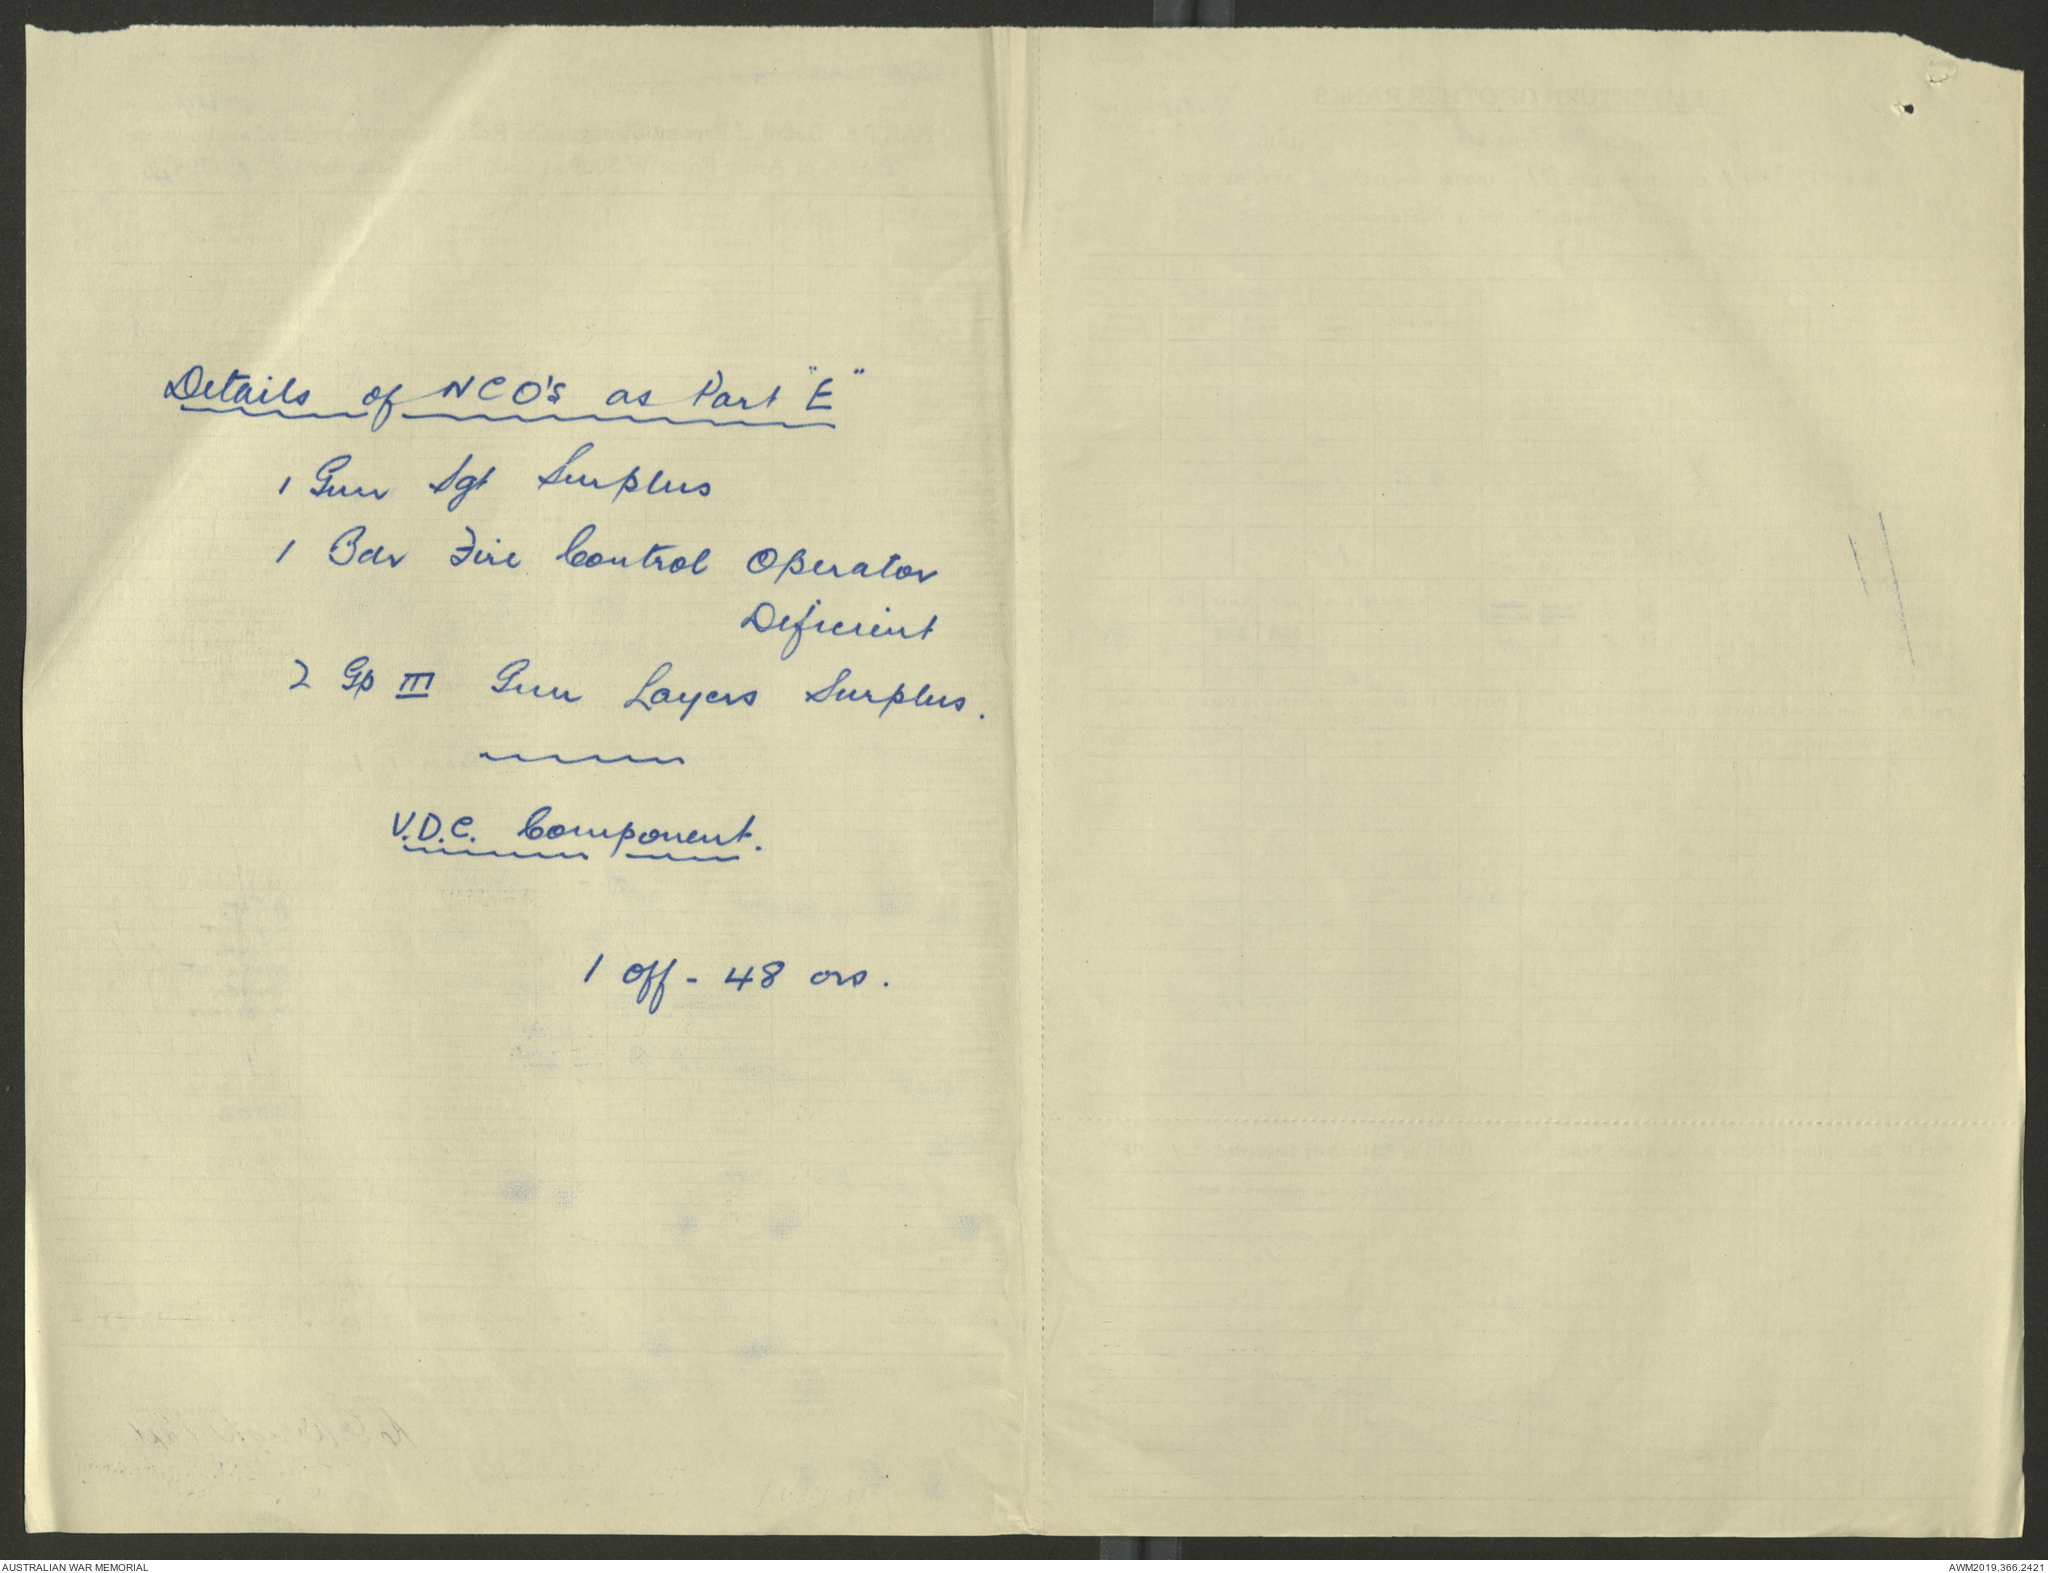 Details of NCO's as Part "E"
1 Gun Sgt Surplus
1 Bdr Fire Control Operator
Deficient
2 Gp III Gun Layers Surplus.
V.D.C. Component.
1 Off - 48 ors.
AUSTRALIAN WAR MEMORIAL
AWM2019.366.2421